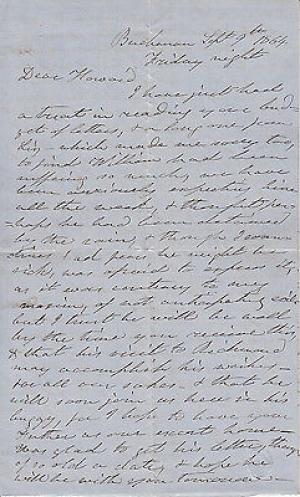 Buchanan Sept 9th 1864.
Friday night
Dear Howard
I have just had
a treat in reading your bud-
get of letters, & a long one from
him - which made me sorry too,
to find William had been
suffering so much, we have
been anxiously expecting him
all the week & thought per-
haps he had been detained
by the rain, though I some-
times had fears he might be
sick, was afraid to express it,
as it was contrary to my
maxim of not anticipating evil
but I trust he will be well
by the time you receive this,
& that his visit to Richmond
may accomplish his wishes -
for all our sakes - & that he
will soon join us here in his
buggy, for I hope to have your
Father as our escort home -
was glad to get his letter, though
of so old a date, & hope he
will be with you tomorrow -